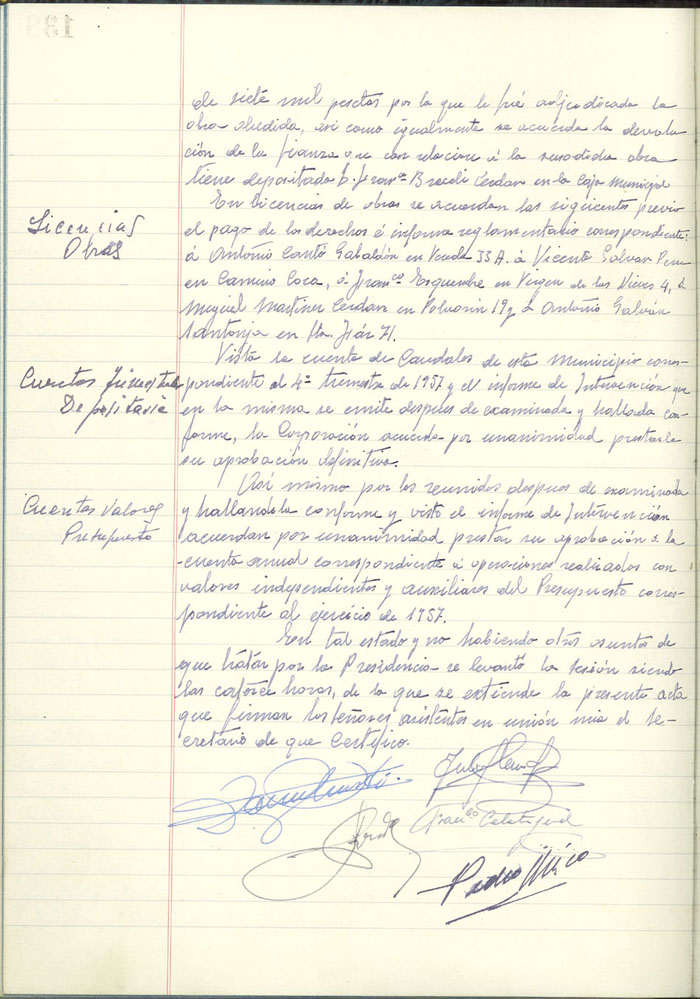 de siete mil pesetas por la que le fué adjudicada la
obra aludida, asi como igualmente se acuerda la devolu-
ción de la fianza que con relacion á la susodicha obra
tiene depositada D. Franco Cerdan en la Caja Municipal
Licencias
Obras
En licencias de obras se acuerdan las siguientes previo
el pago de los derechos é informe reglamentario correspondiente:
á Antonio Cantó Gabaldón en Vereda 35 A. á Vicente Galvañ
en Camino Coca, á Franco Esquembre en Virgen de las Nieves 4, á
Miguel Martínez Cerdan en Polvorin 19 y á Antonio Galván
Santonja en 71.
Cuentas Trimestrales
Depositaria
Vista la cuenta de Caudales de este Municipio corres-
pondiente al 4º trimestre de 1957 y el informe de Intervención que
en la misma se emite despues de examinada y hallada con-
forme, la Corporación acuerda por unanimidad prestarle
su aprobación definitiva.
Cuentas Valores
Presupuesto
Así mismo por los reunidos despues de examinada
y hallandola conforme y visto el informe de Intervención
acuerdan por unanimidad prestar su aprobación á la
cuenta anual correspondiente á operaciones realizadas con
valores independientes y auxiliares del Presupuesto corres-
pondiente al ejercicio de 1957.
En tal estado y no habiendo otros asuntos de
que tratar por la Presidencia se levantó la sesión siendo
las catorce horas, de la que se extiende la presente acta
que firman los señores asistentes en unión mia el Se-
cretario de que certifico.
Franco
Pedro Micó